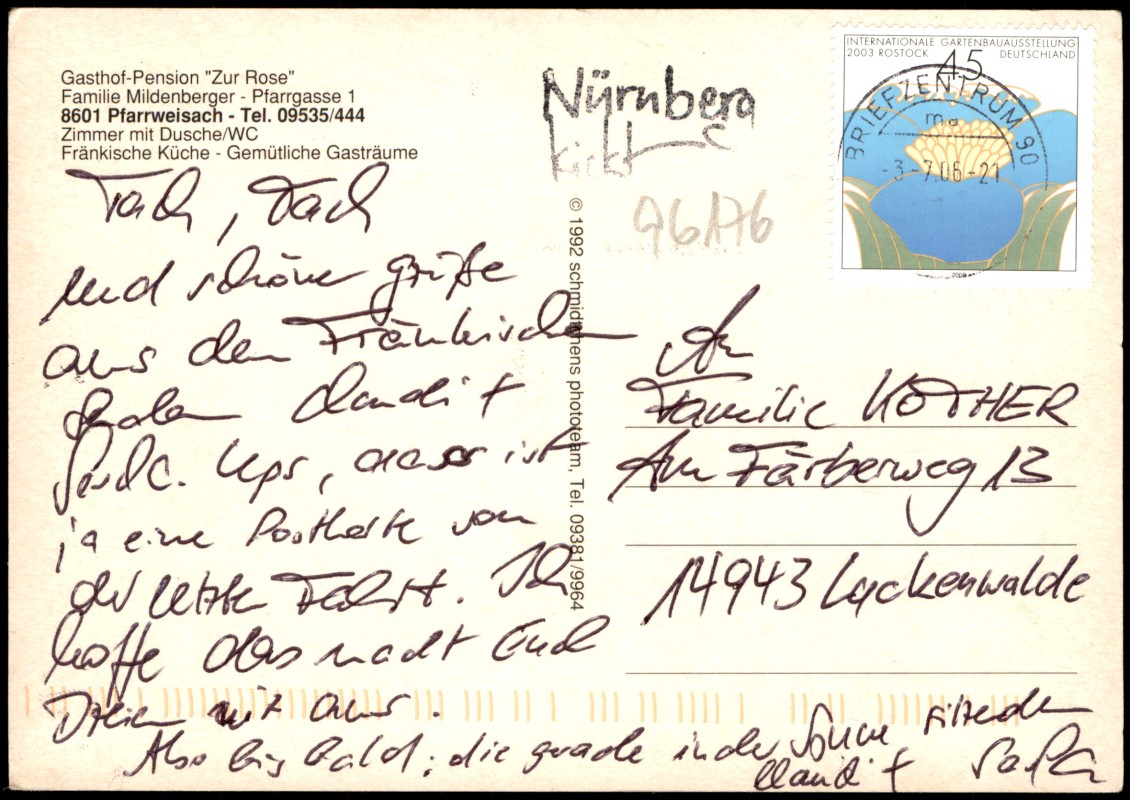 Gasthof-Pension "Zur Rose"
Familie Mildenberger - Pfarrgasse 1
8601 Pfarrweisach - Tel. 09535/444
Zimmer mit Dusche/WC
Fränkische Küche - Gemütliche Gasträume
Nürnberg
96A76
INTERNATIONALE GARTENBAUAUSSTELLUNG
2003 ROSTOCK DEUTSCHLAND
45
BRIEFZENTRUM 90
ma
-3-7.06-21
2003
© 1992 schmidtchens phototeam, Tel. 09381/9964
Tach, Tach
und schöne Grüße
aus dem Fränkischen
Claudi +
Ups, ist
ja eine Postkarte von
der letzten Fahrt. Ich
hoffe das macht Euch
nix aus.
Also bis bald, die gerade in der Sonne sitzenden
Claudi +
An
Familie KÖTHER
Am Färberweg 13
14943 Luckenwalde